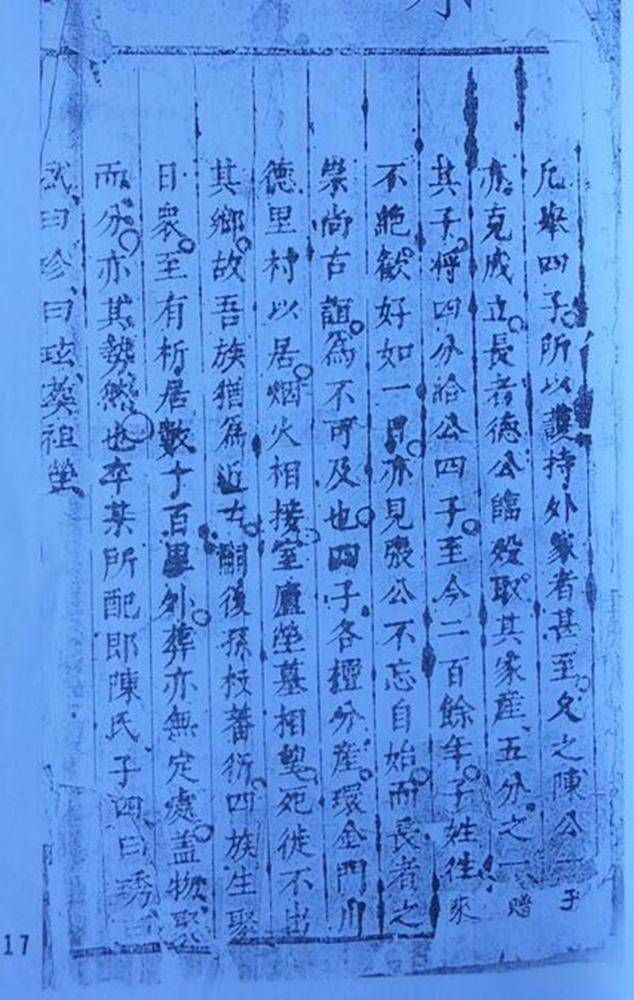 凡舉四子所以護持外家者甚至久之陳公一子
亦克成立長者德公臨歿取其家産五分之一贈
其子將四分給公四子至今二百餘年子姓往來
不絶歡好如一日亦見張公不忘自始而長者之
崇尚古誼為不可及也四子各擅分産環金門川
德里村以居烟火相接室廬塋墓相望死徙不出
其鄉故吾族猶為近古嗣後孫枝蕃衍四族生聚
日衆至有析居數十百里外葬亦無定處盖物聚
而分亦其勢然也卒某所配即陳氏子四曰琇曰
武曰珍曰玹葬祖塋
17